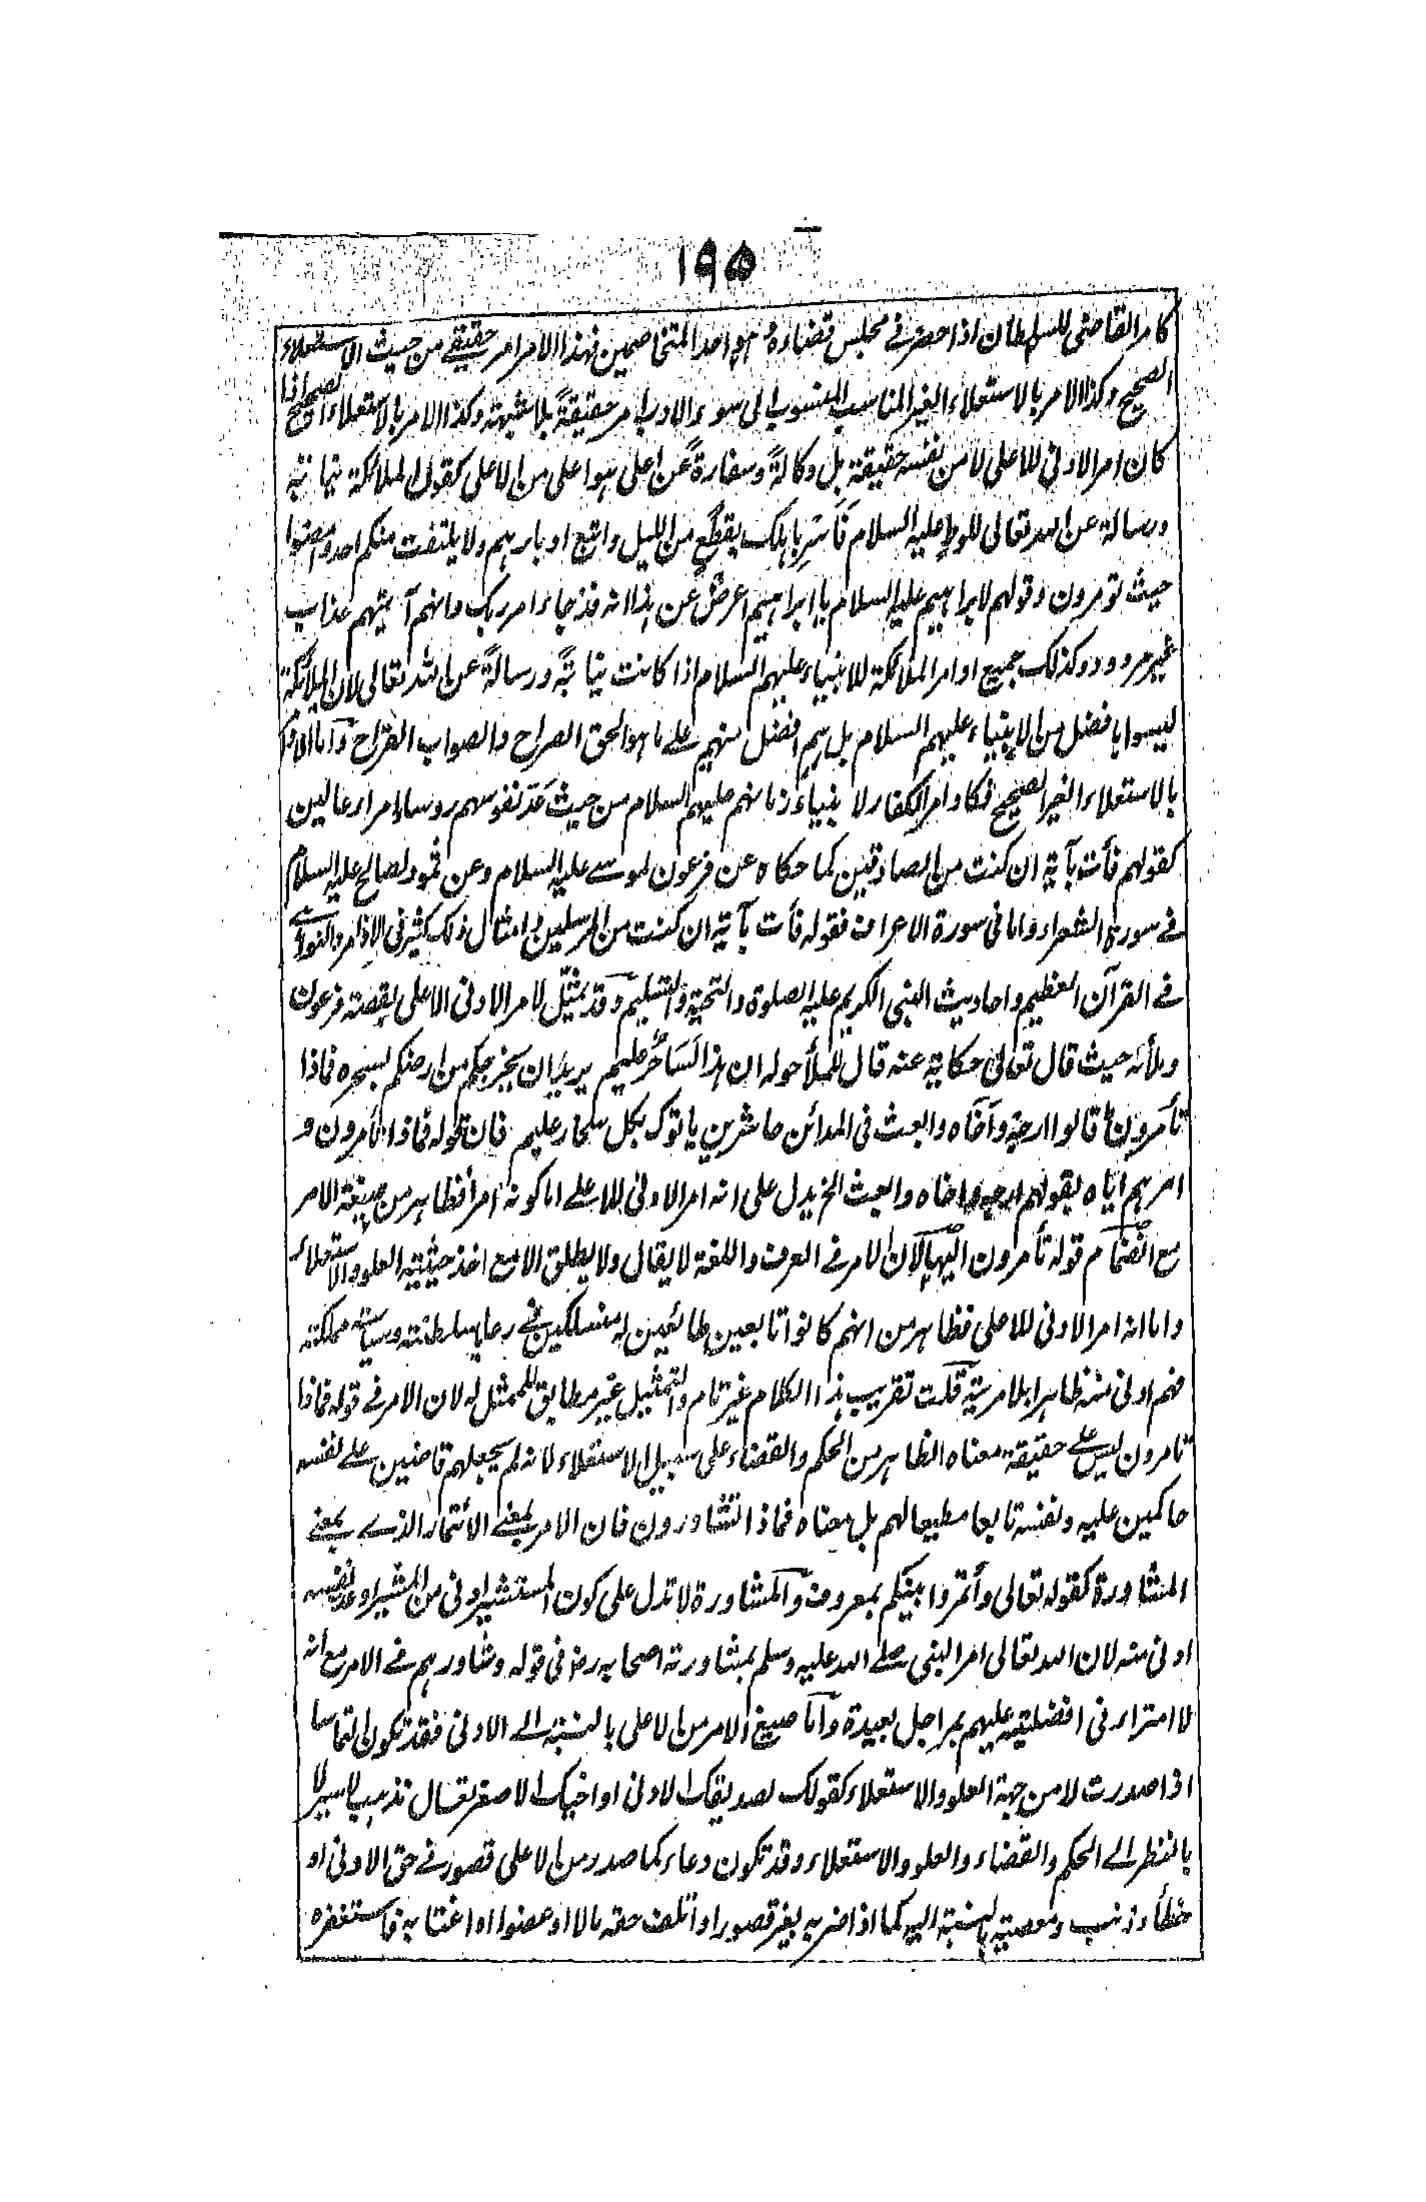 ١٩٥
كامر القاضى للسلطان اذا حضر فے مجلس قضاءه وهو احد المتخاصمين فهذا الامر امر حقيقے من حيث الاستعلاء
الصحيح وكذا الامر بالاستعلاء الغير المناسب المنسوب الى سوء الادب امر حقيقةً بلا شبهة وكذا الامر بالاستعلاء الصحيح اذا
كان امر الادنى للاعلى لا من نفسه حقيقة بل وكالةً وسفارةً عن اعلى هو اعلى من الاعلى كقول الملائكة نيابة
ورسالة عن الله تعالى للوط عليه السلام فَاَسْرِ باهلك بقطعٍ من الليل واتبع ادبارهم ولا يلتفت منكم احد وامضوا
حيث تؤمرون وقولهم لابراهيم عليه السلام يا ابراهيم اعرض عن هذا انه قد جاء امر ربك وانهم آتيهم عذاب
غير مردود وكذلك جميع اوامر الملائكة للانبياء عليهم السلام اذا كانت نيابةً ورسالةً عن الله تعالى لان الملائكة
ليسوا بافضل من الانبياء عليهم السلام بل هم افضل منهم علے ما هو الحق الصراح والصواب القراح واما الامر
بالاستعلاء الغير الصحيح فكاوامر الكفار لانبياء زمانهم عليهم السلام من حيث عَدّ نفوسهم روساء امراء عالين
كقولهم فأت بآية ان كنت من الصادقين كما حكاه عن فرعون لموسے عليه السلام وعن ثمود لصالح عليه السلام
فے سورة الشعراء واما فى سورة الاعراف فقوله فأت بآية ان كنت من المرسلين و امثال ذلك كثير فى الاوامر والنواهے
فے القرآن العظيم واحاديث النبى الكريم عليه الصلوة والتحية والتسليم وقد يمثّل لامر الادنى الاعلى بقصة فرعون
وملأئه حيث قال تعالى حكاية عنه قال للملأ حوله ان هذا لَسَاحرٌ عليم يريد ان يخرجكم من ارضكم بسحره فماذا
تأمرون قالوا ارجه وأخاه وابعث فى المدائن حاشرين ياتوك بكل سحار عليم فان قوله فماذا تأمرون و
امرهم اياه بقولهم ارجه واخاه وابعث الخ يدل على انه امر الادنى للاعلے اما كونه امرأ فظاهر من صيغة الامر
مع انضمام قوله تأمرون اليها لان الامر فے العرف واللغة لا يقال ولا يطلق الا مع اخذ حيثية العلو والاستعلاء
واما انه امر الادنى للاعلى فظاهر من انهم كانوا تابعين طائعين له منسلكين فے رعايا سلطنته وسياسة مملكته
فهم ادنى منه ظاهرا بلا مرية قلت تقريب هذا الكلام غير تام والتمثيل غير مطابق للممثل له لان الامر فے قوله فماذا
تامرون ليس علے حقيقة معناه الظاهر من الحكم والقضاء على سبيل الاستعلاء لانه لم يجعلهم قاضين علے نفسه
حاكمين عليه ونفسه تابعا مطيعا لهم بل معناه فماذا تشاورون فان الامر بمعنے الأتمار الذے بمعنے
المشاورة كقوله تعالى وأتمروا بينكم بمعروف والمشاورة لا تدل على كون المستشير ادنى من المشير او عد نفسه
ادنى منه لان الله تعالى امر النبى صلے الله عليه وسلم بمشاورته اصحابه رض فى قوله وشاورهم فے الامر مع انه
لا امتراء فى افضليته عليهم بمراحل بعيدة واما صيغ الامر من الاعلى بالنسبة الے الادنى فقد تكون التماسا
اذا صدرت لا من جهة العلو والاستعلاء كقولك لصديقك الادنى او اخيك الاصغر تعال نذهب لاسيرلا
بالنظر الے الحكم والقضاء والعلو والاستعلاء وقد تكون دعاء كما صدر من الاعلى قصور فے حق الادنى او
خطأ وذنب ومعصية بالنسبة اليه كما اذا ضربه بغير قصور او اتلف حقه مالا او عضوا او اغتابه فاستغفره